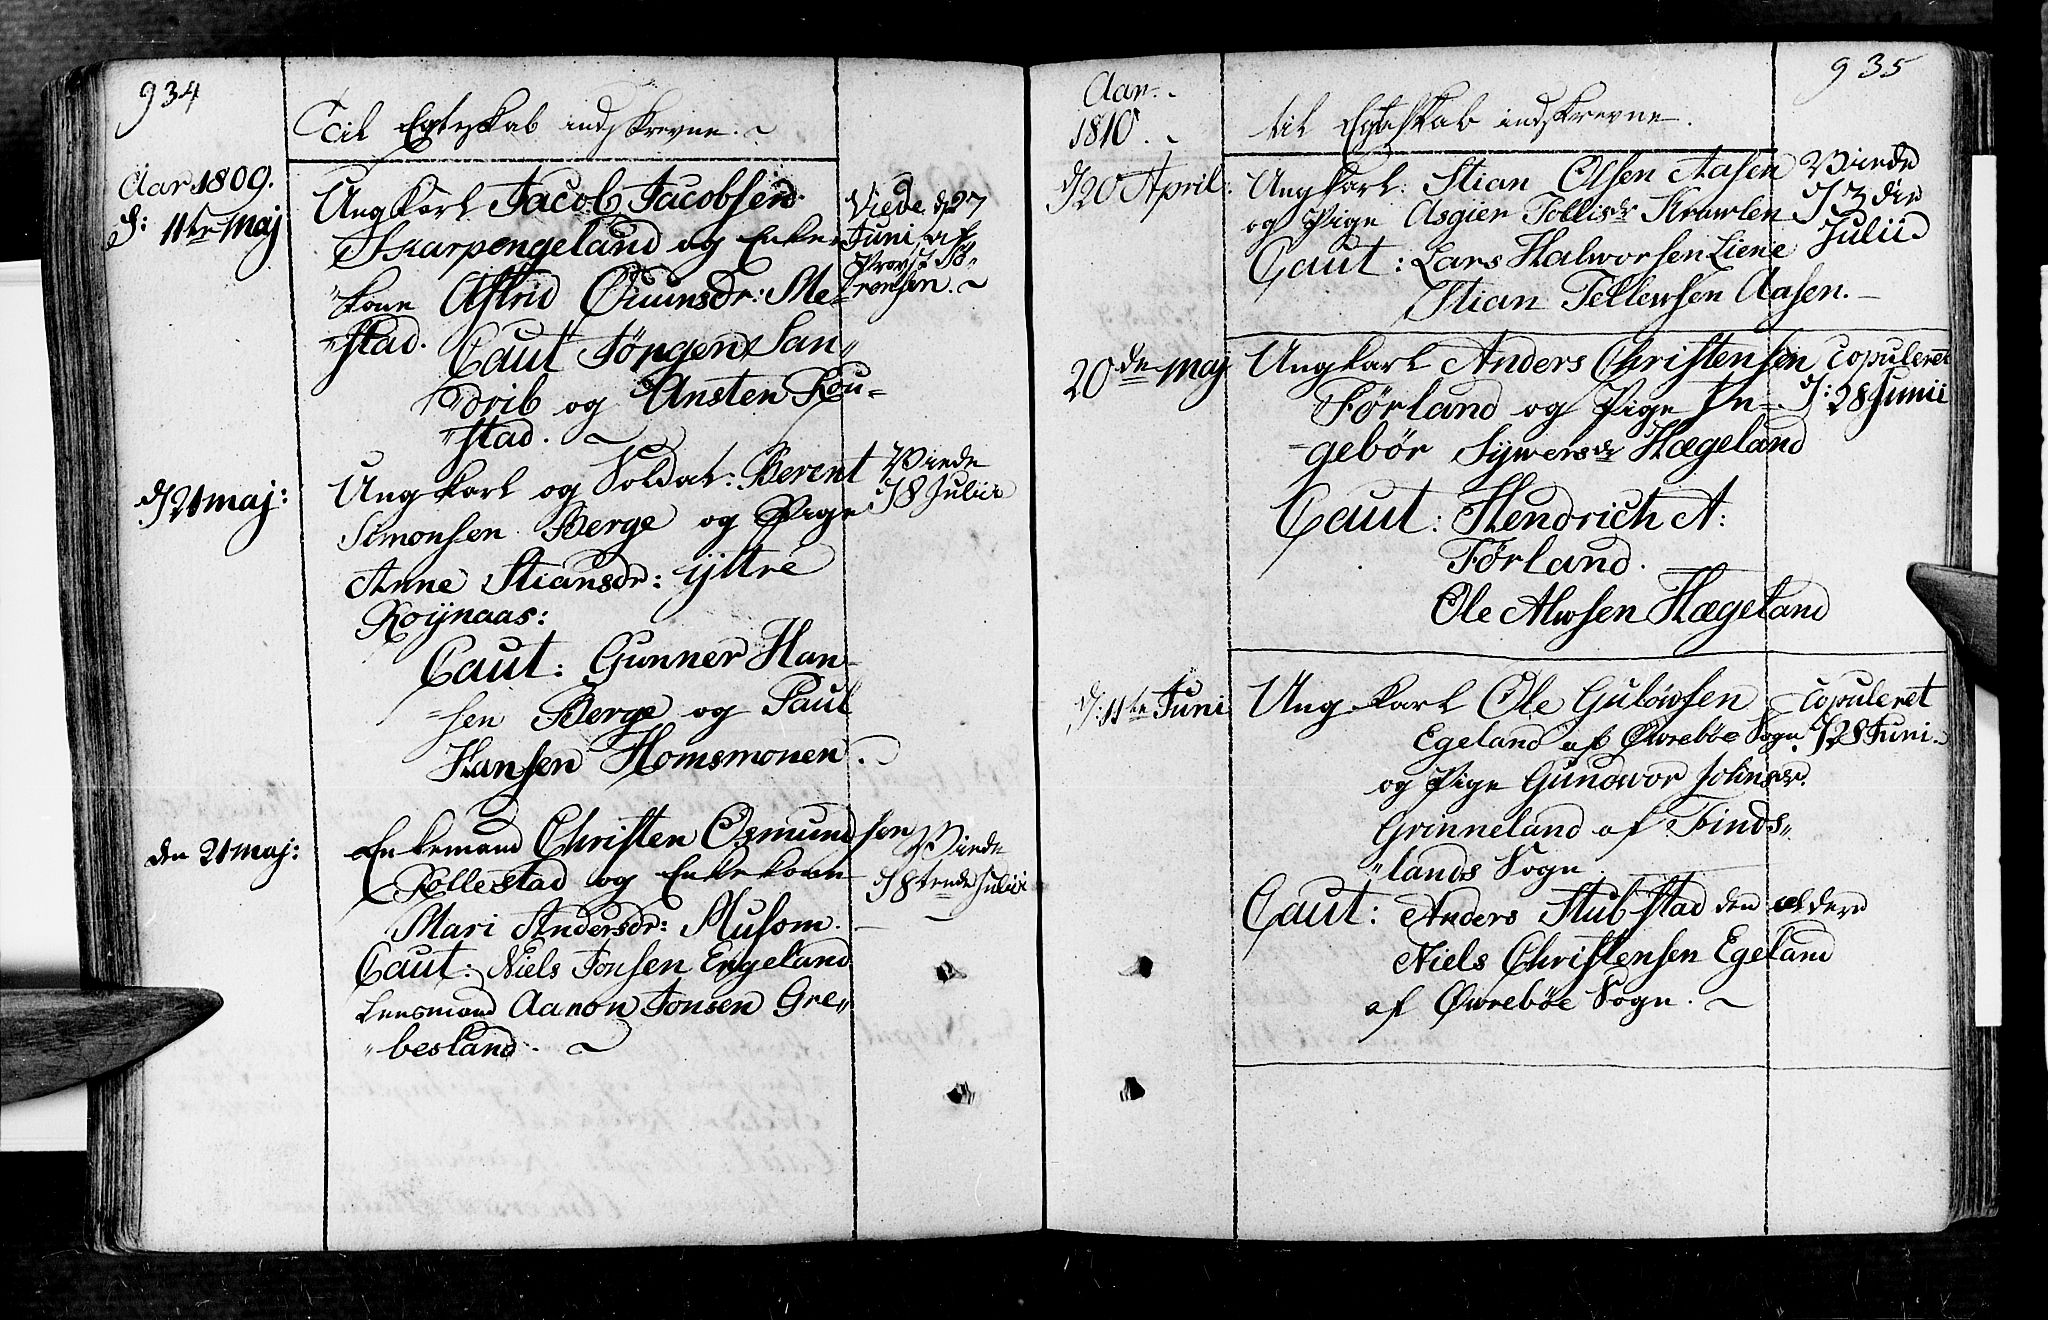 934
Til Egteskab indskrevne.
Aar 1809.
d: 11te Maj
Ungkarl Jacob Jacobsen
Skarpengeland og Enke
kone Astrid Omunsdr: Me
stad.
Caut Jörgen San„
drib og Ansten Rou=
„stad.
Viede d 27
Juni af
Provst Sö„
rensen.
d 21 maj:
Ungkarl og Soldat: Berent
Simonsen Berge og Pige
Anne Stiansdr: ÿttre
Roÿnaas:
Caut: Gunner Han
sen Berge og Paul
Hansen Homsmonen.
Viede
d 8 Julii
den 21 maj:
Enkemand Christen Osmundsen
Rollestad og Enkekone
Mari Andersdr: Musom.
Caut: Niels Jonsen Engeland
Lensmand Aanon Jonsen Gre„
„besland.
Viede
d 8tende Julii
935
Aar
1810.
til Egteskab indskrevne.
d 20 April:
Ungkarl: Stian Olsen Aasen
og Pige Asgier Tollisdr
Caut: Lars Halworsen Liene
Stian Tellewsen Aasen.
Viede
d 3 die
Julii
20de maj
Ungkarl Anders Christensen
Førland og Pige In=
=gebør Sÿwersdr Hægeland
Caut: Hendrich A:
Førland.
Ole Alwsen Hægeland
Copuleret
d: 28 Junii
d: 11te Juni
Ung karl Ole Gulowsen
Egeland af Øwrebøe Sogn
og Pige Gunowor Johnsdr.
Grinneland af Finds„
„lands Sogn
Caut: Anders Stubstad den ældere
Niels Christensen Egeland
af Øwrebøe Sogn.
Copuleret
d 28 Juni.